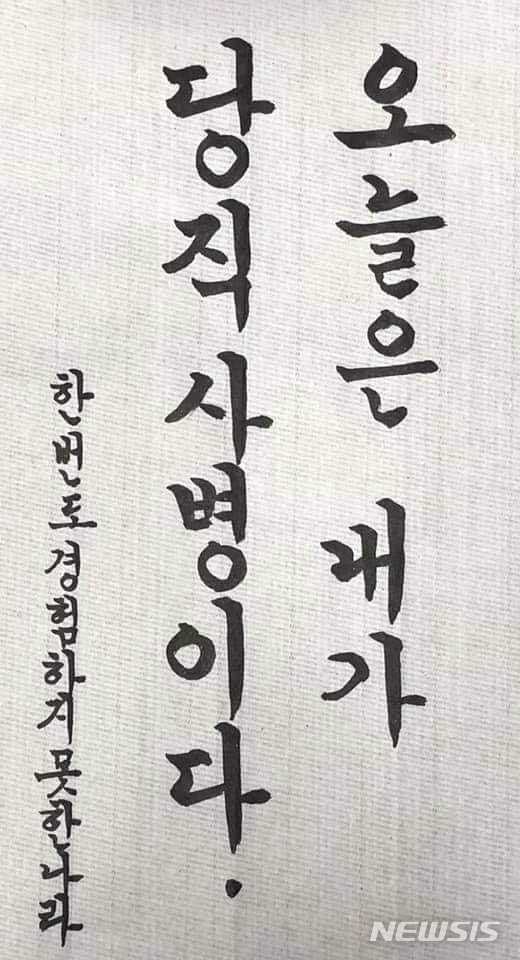 오늘은 내가
당직사병이다.
한번도경험하지못한나라
NEWSIS